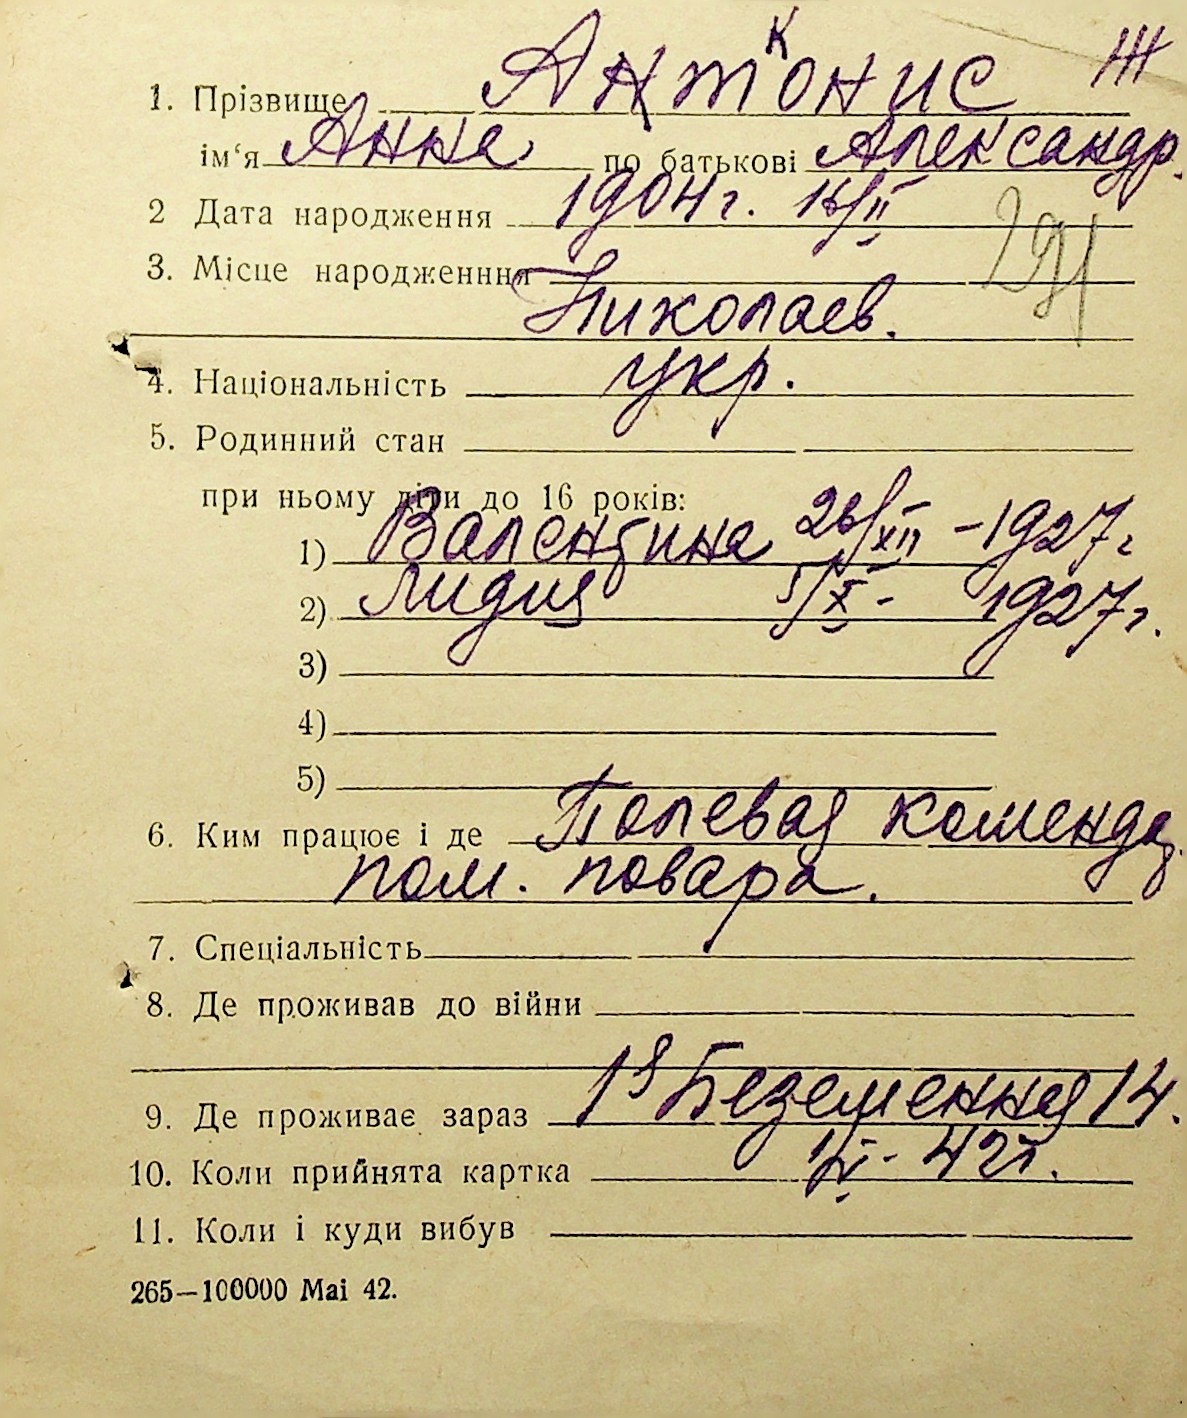 К
1. Прізвище Антонис Ж
ім'я Анна по батькові Александр.
2 Дата народження 1904 г. 16/II
3. Місце народженння 291
Николаев.
4. Національність укр.
5. Родинний стан
при ньому діти до 16 років:
1) Валентина 26/XII - 1927 г
2) Лидия 5/X - 1927 г.
3)
4)
5)
6. Ким працює і де Полевая коменда
пом. повара.
7. Спеціальність
8. Де проживав до війни
9. Де проживає зараз 14.
10. Коли прийнята картка 42 г.
11. Коли і куди вибув
265—100000 Mai 42.